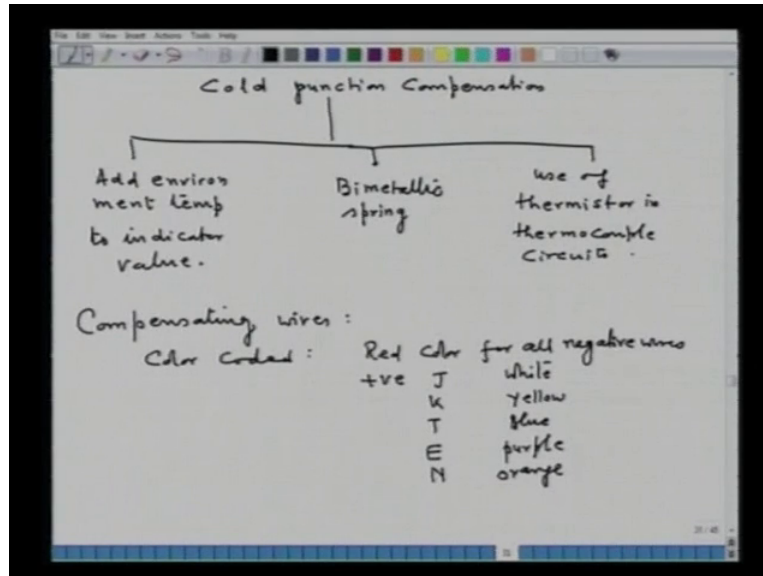 File Edit View Insert Actions Tools Help
Cold punction Compensation
Add environ
ment temp
to indicator
value.
Bimetallic
spring
use of
thermistor in
thermocouple
Circuits.
Compensating wires:
Color Coded: Red Color for all negative wires
+ve J white
K yellow
T blue
E purple
N orange